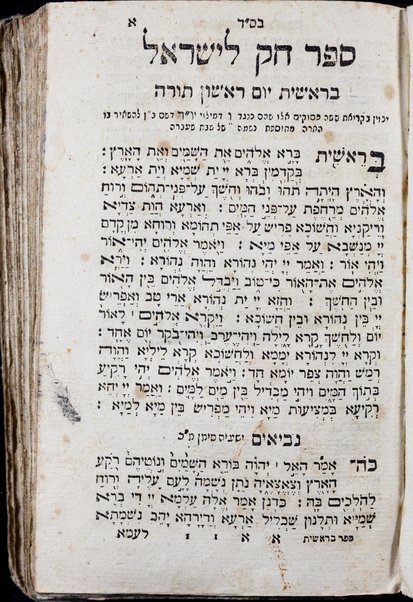 בס״ד א
ספר חק לישראל
בראשית יום ראשון תורה
יכוין בקריאת ששה פסוקים אלו שהם כנגד ו דמילוי יו״ד דשם ב״ן להשאיר בו
הארה מתוספת נשמה של שבת שעברה
בראשית בָּרָא אֱלֹהִים אֵת הַשָּׁמַיִם וְאֵת הָאָרֶץ׃
בְּקַדְמִין בְּרָא יְיָ יָת שְׁמַיָּא וְיָת אַרְעָא׃
וְהָאָרֶץ הָיְתָה תֹהוּ וָבֹהוּ וְחֹשֶׁךְ עַל־פְּנֵי־תְהוֹם וְרוּחַ
אֱלֹהִים מְרַחֶפֶת עַל־פְּנֵי הַמָּיִם׃ וְאַרְעָא הֲוַת צַדְיָא
וְרֵיקַנְיָא וַחֲשׁוֹכָא פְּרִישׁ עַל־אַפֵּי תְהוֹמָא וְרוּחָא מִן קֳדָם
יְיָ מְנַשְּׁבָא עַל אַפֵּי מַיָּא׃ וַיֹּאמֶר אֱלֹהִים יְהִי־אוֹר
וַיְהִי אוֹר׃ וַאֲמַר יְיָ יְהִי נְהוֹרָא וַהֲוָה נְהוֹרָא׃ וַיַּרְא
אֱלֹהִים אֶת־הָאוֹר כִּי־טוֹב וַיַּבְדֵּל אֱלֹהִים בֵּין הָאוֹר
וּבֵין הַחֹשֶׁךְ׃ וַחֲזָא יְיָ יָת נְהוֹרָא אֲרֵי טָב וְאַפְרֵישׁ
יְיָ בֵּין נְהוֹרָא וּבֵין חֲשׁוֹכָא׃ וַיִּקְרָא אֱלֹהִים לָאוֹר
יוֹם וְלַחֹשֶׁךְ קָרָא לָיְלָה וַיְהִי־עֶרֶב וַיְהִי־בֹקֶר יוֹם אֶחָד׃
וּקְרָא יְיָ לִנְהוֹרָא יְמָמָא וְלַחֲשׁוֹכָא קְרָא לֵילְיָא וַהֲוָה
רְמַשׁ וַהֲוָה צְפַר יוֹמָא חַד׃ וַיֹּאמֶר אֱלֹהִים יְהִי רָקִיעַ
בְּתוֹךְ הַמָּיִם וִיהִי מַבְדִּיל בֵּין מַיִם לָמָיִם׃ וַאֲמַר יְיָ יְהֵא
רְקִיעָא בִּמְצִיעוּת מַיָּא וִיהֵי מַפְרִישׁ בֵּין מַיָּא לְמַיָּא׃
נביאים ישעיה סימן מ״ב
כֹּה־ אָמַר הָאֵל יְהֹוָה בּוֹרֵא הַשָּׁמַיִם וְנוֹטֵיהֶם רֹקַע
הָאָרֶץ וְצֶאֱצָאֶיהָ נֹתֵן נְשָׁמָה לָעָם עָלֶיהָ וְרוּחַ
לַהֹלְכִים בָּהּ׃ כִּדְנַן אֲמַר אֱלָהּ עָלְמָא יְיָ דִּי בְּרָא
שְׁמַיָּא וּתְלָנוּן שַׁכְלֵיל אַרְעָא וְדָיְרָהָא יְהַב נִשְׁמָתָא
ספר בראשית א א ו ו לעמא